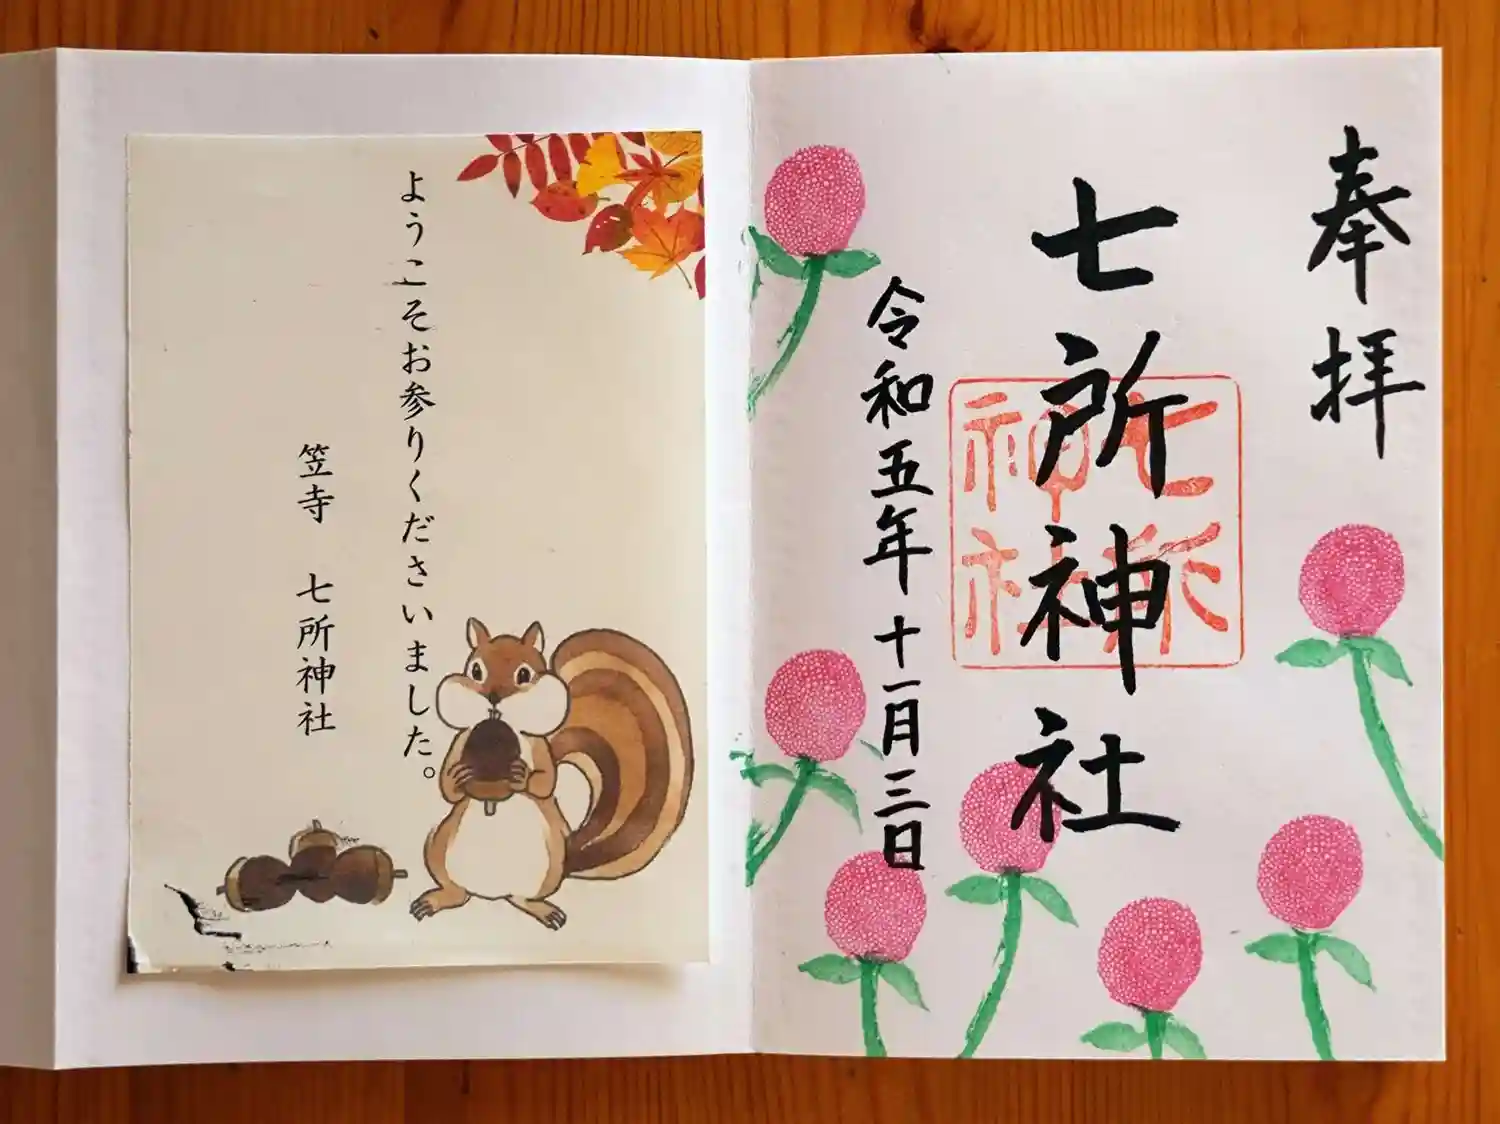 奉拝
七所神社
七所
神社
令和五年十一月三日
ようこそお参りくださいました。
笠寺 七所神社